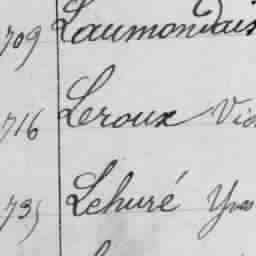 709 Laumondais
716 Leroux Vic
735 Lehuré Yves